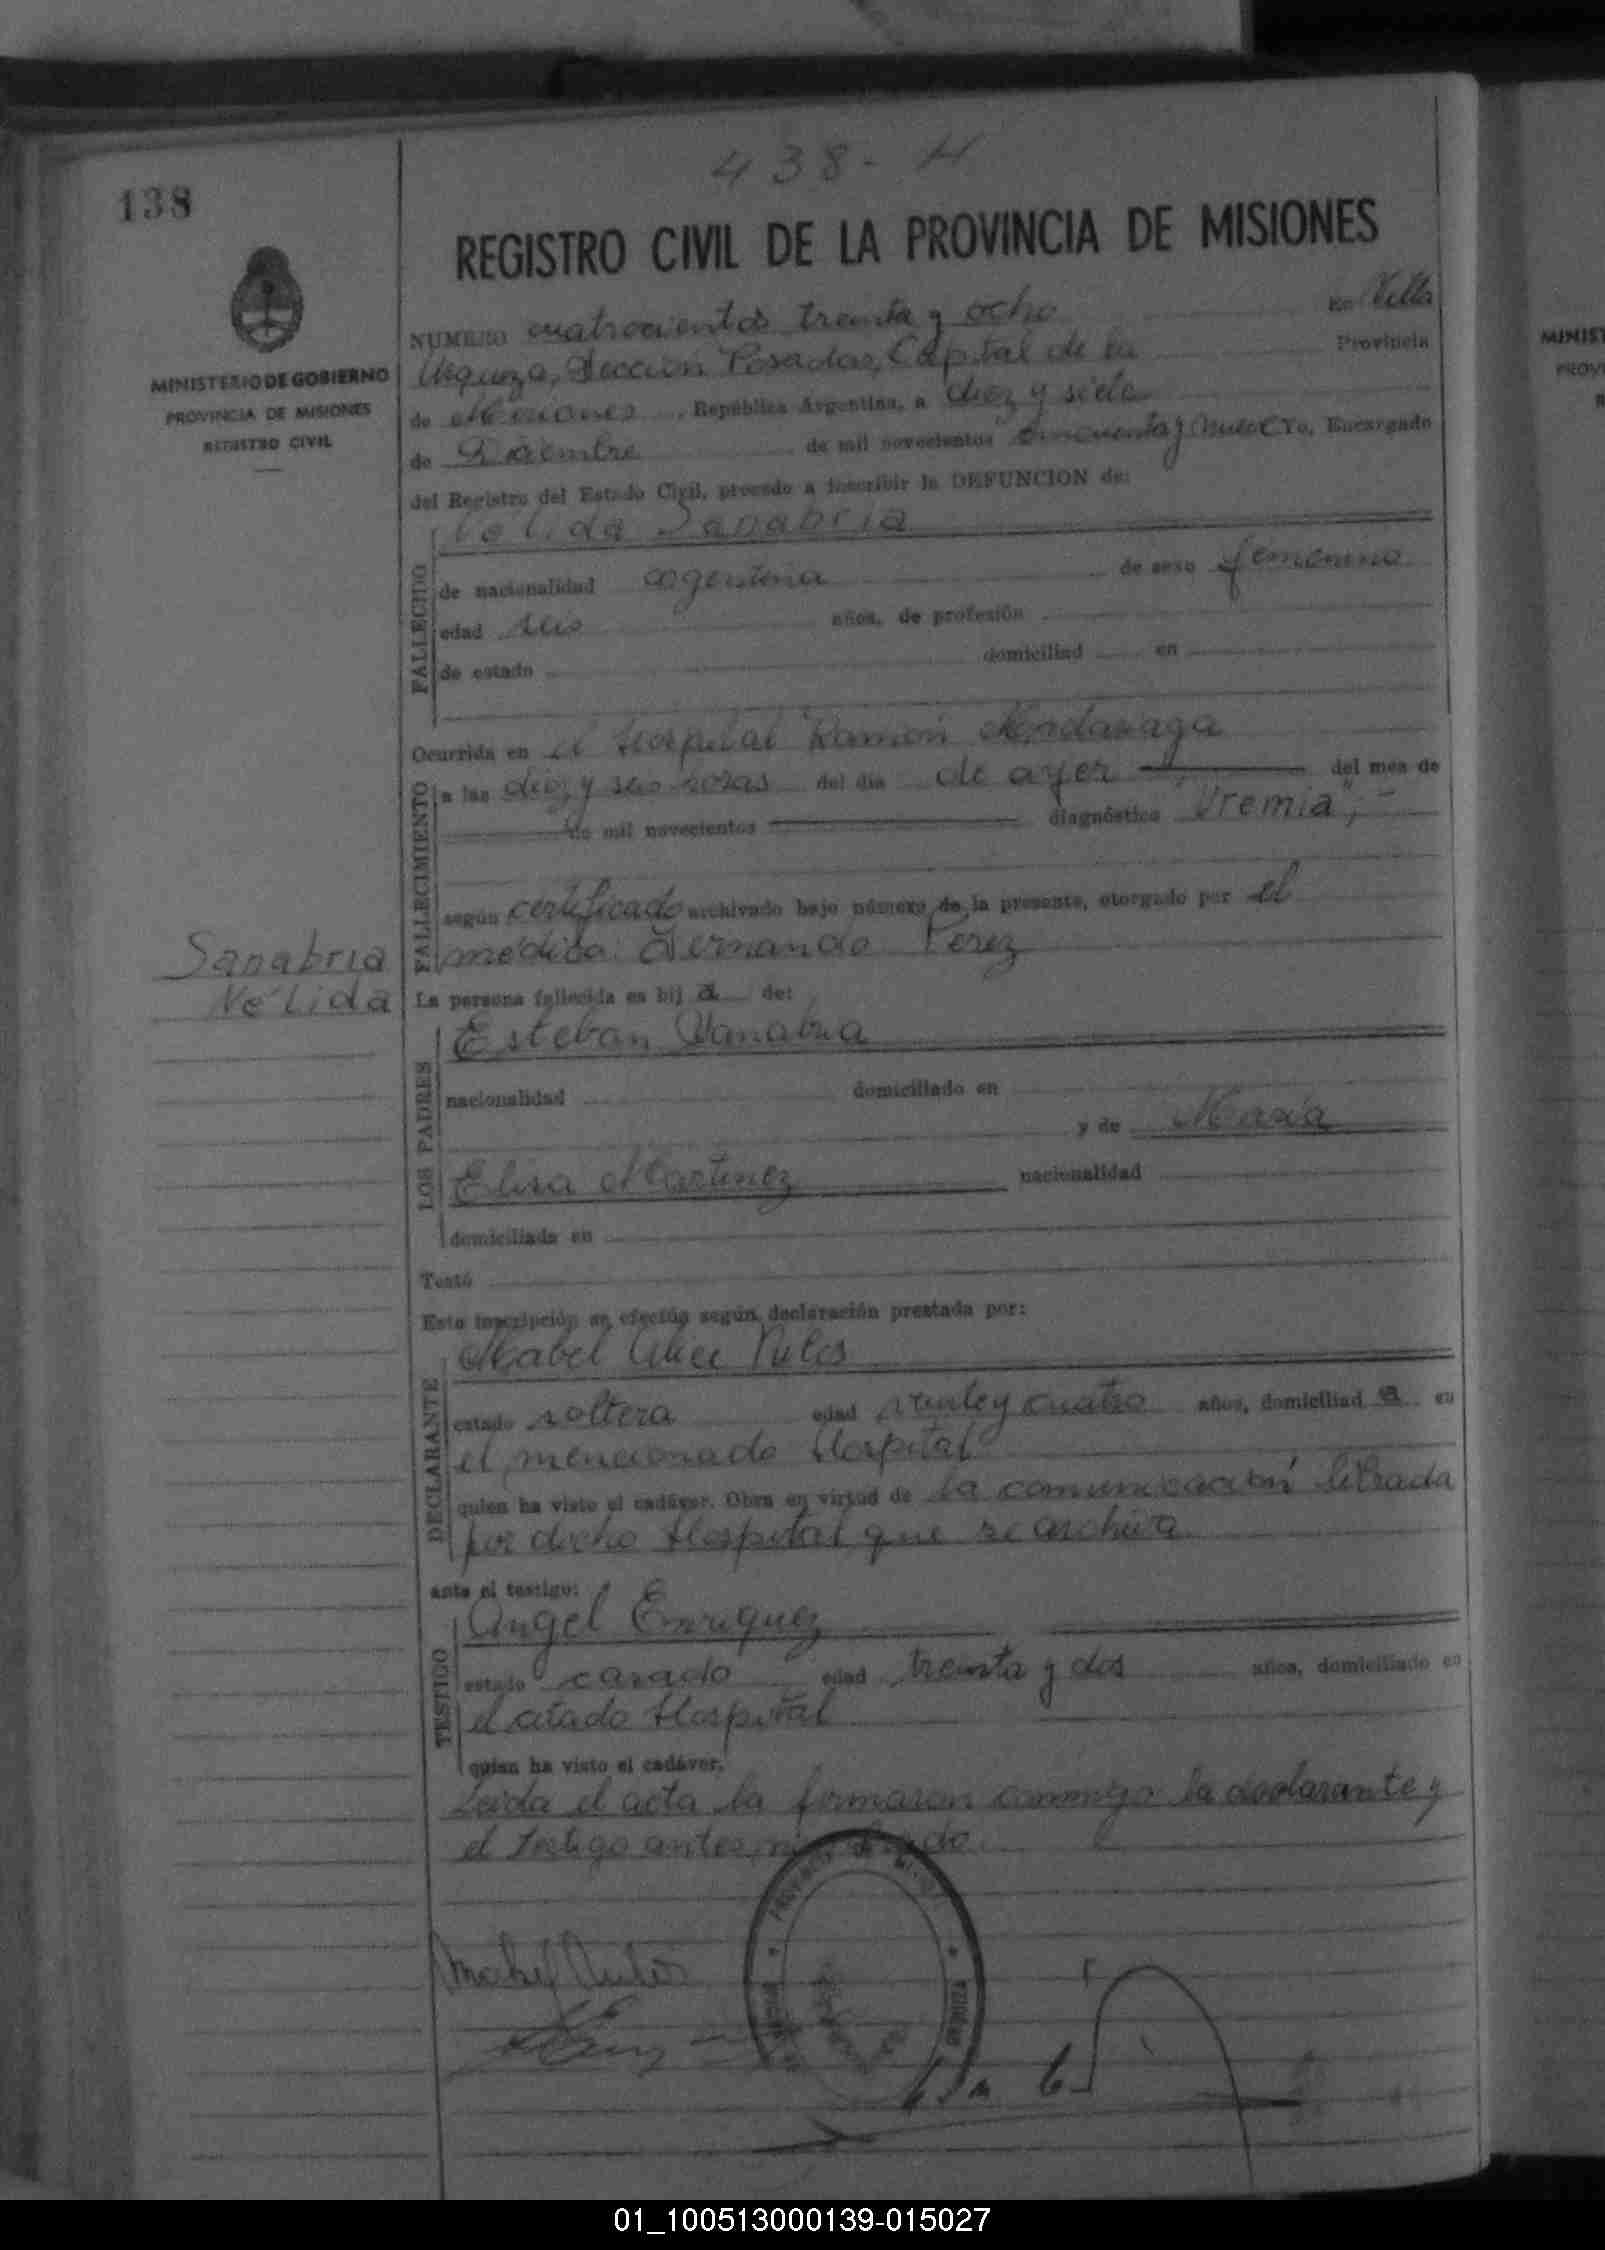 438-H
138
REGISTRO CIVIL DE LA PROVINCIA DE MISIONES
NUMERO cuatrocientos treinta y ocho En Villa
Urquiza, Sección Posadas, Capital de la Provincia
de Misiones, República Argentina, a diez y siete
de Diciembre de mil novecientos cincuenta y nueve Yo, Encargado
del Registro del Estado Civil, procedo a inscribir la DEFUNCION de:
MINISTERIO DE GOBIERNO
PROVINCIA DE MISIONES
REGISTRO CIVIL
FALLECIDO
Nélida Sanabria
de nacionalidad argentina de sexo femenino
edad seis años, de profesión
de estado domiciliad en
Ocurrida en el Hospital Ramón Madariaga
FALLECIMIENTO
a las diez y seis horas del día de ayer del mes de
de mil novecientos diagnóstico "Uremia",-
según certificado archivado bajo número de la presente, otorgado por el
médico: Fernando Perez
Sanabria
Nélida
La persona fallecida es hij a de:
LOS PADRES
Esteban Sanabria
nacionalidad domiciliado en
y de María
Elisa Martinez nacionalidad
domiciliada en
Testó
Esta inscripción se efectúa según declaración prestada por:
DECLARANTE
Mabel Alice
estado soltera edad veinte y cuatro años, domiciliad a en
el mencionado Hospital
quien ha visto el cadáver. Obra en virtud de la comunicación librada
por dicho Hospital que se archiva
ante el testigo:
TESTIGO
Angel Enriquez
estado casado edad treinta y dos años, domiciliado en
el citado Hospital
quien ha visto el cadáver.
Leida el acta la firmaron conmigo la declarante y
el testigo antes
Mabel
01_100513000139-015027